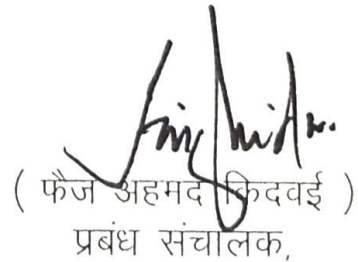 ( फैज अहमद किदवई )
प्रबंध संचालक,